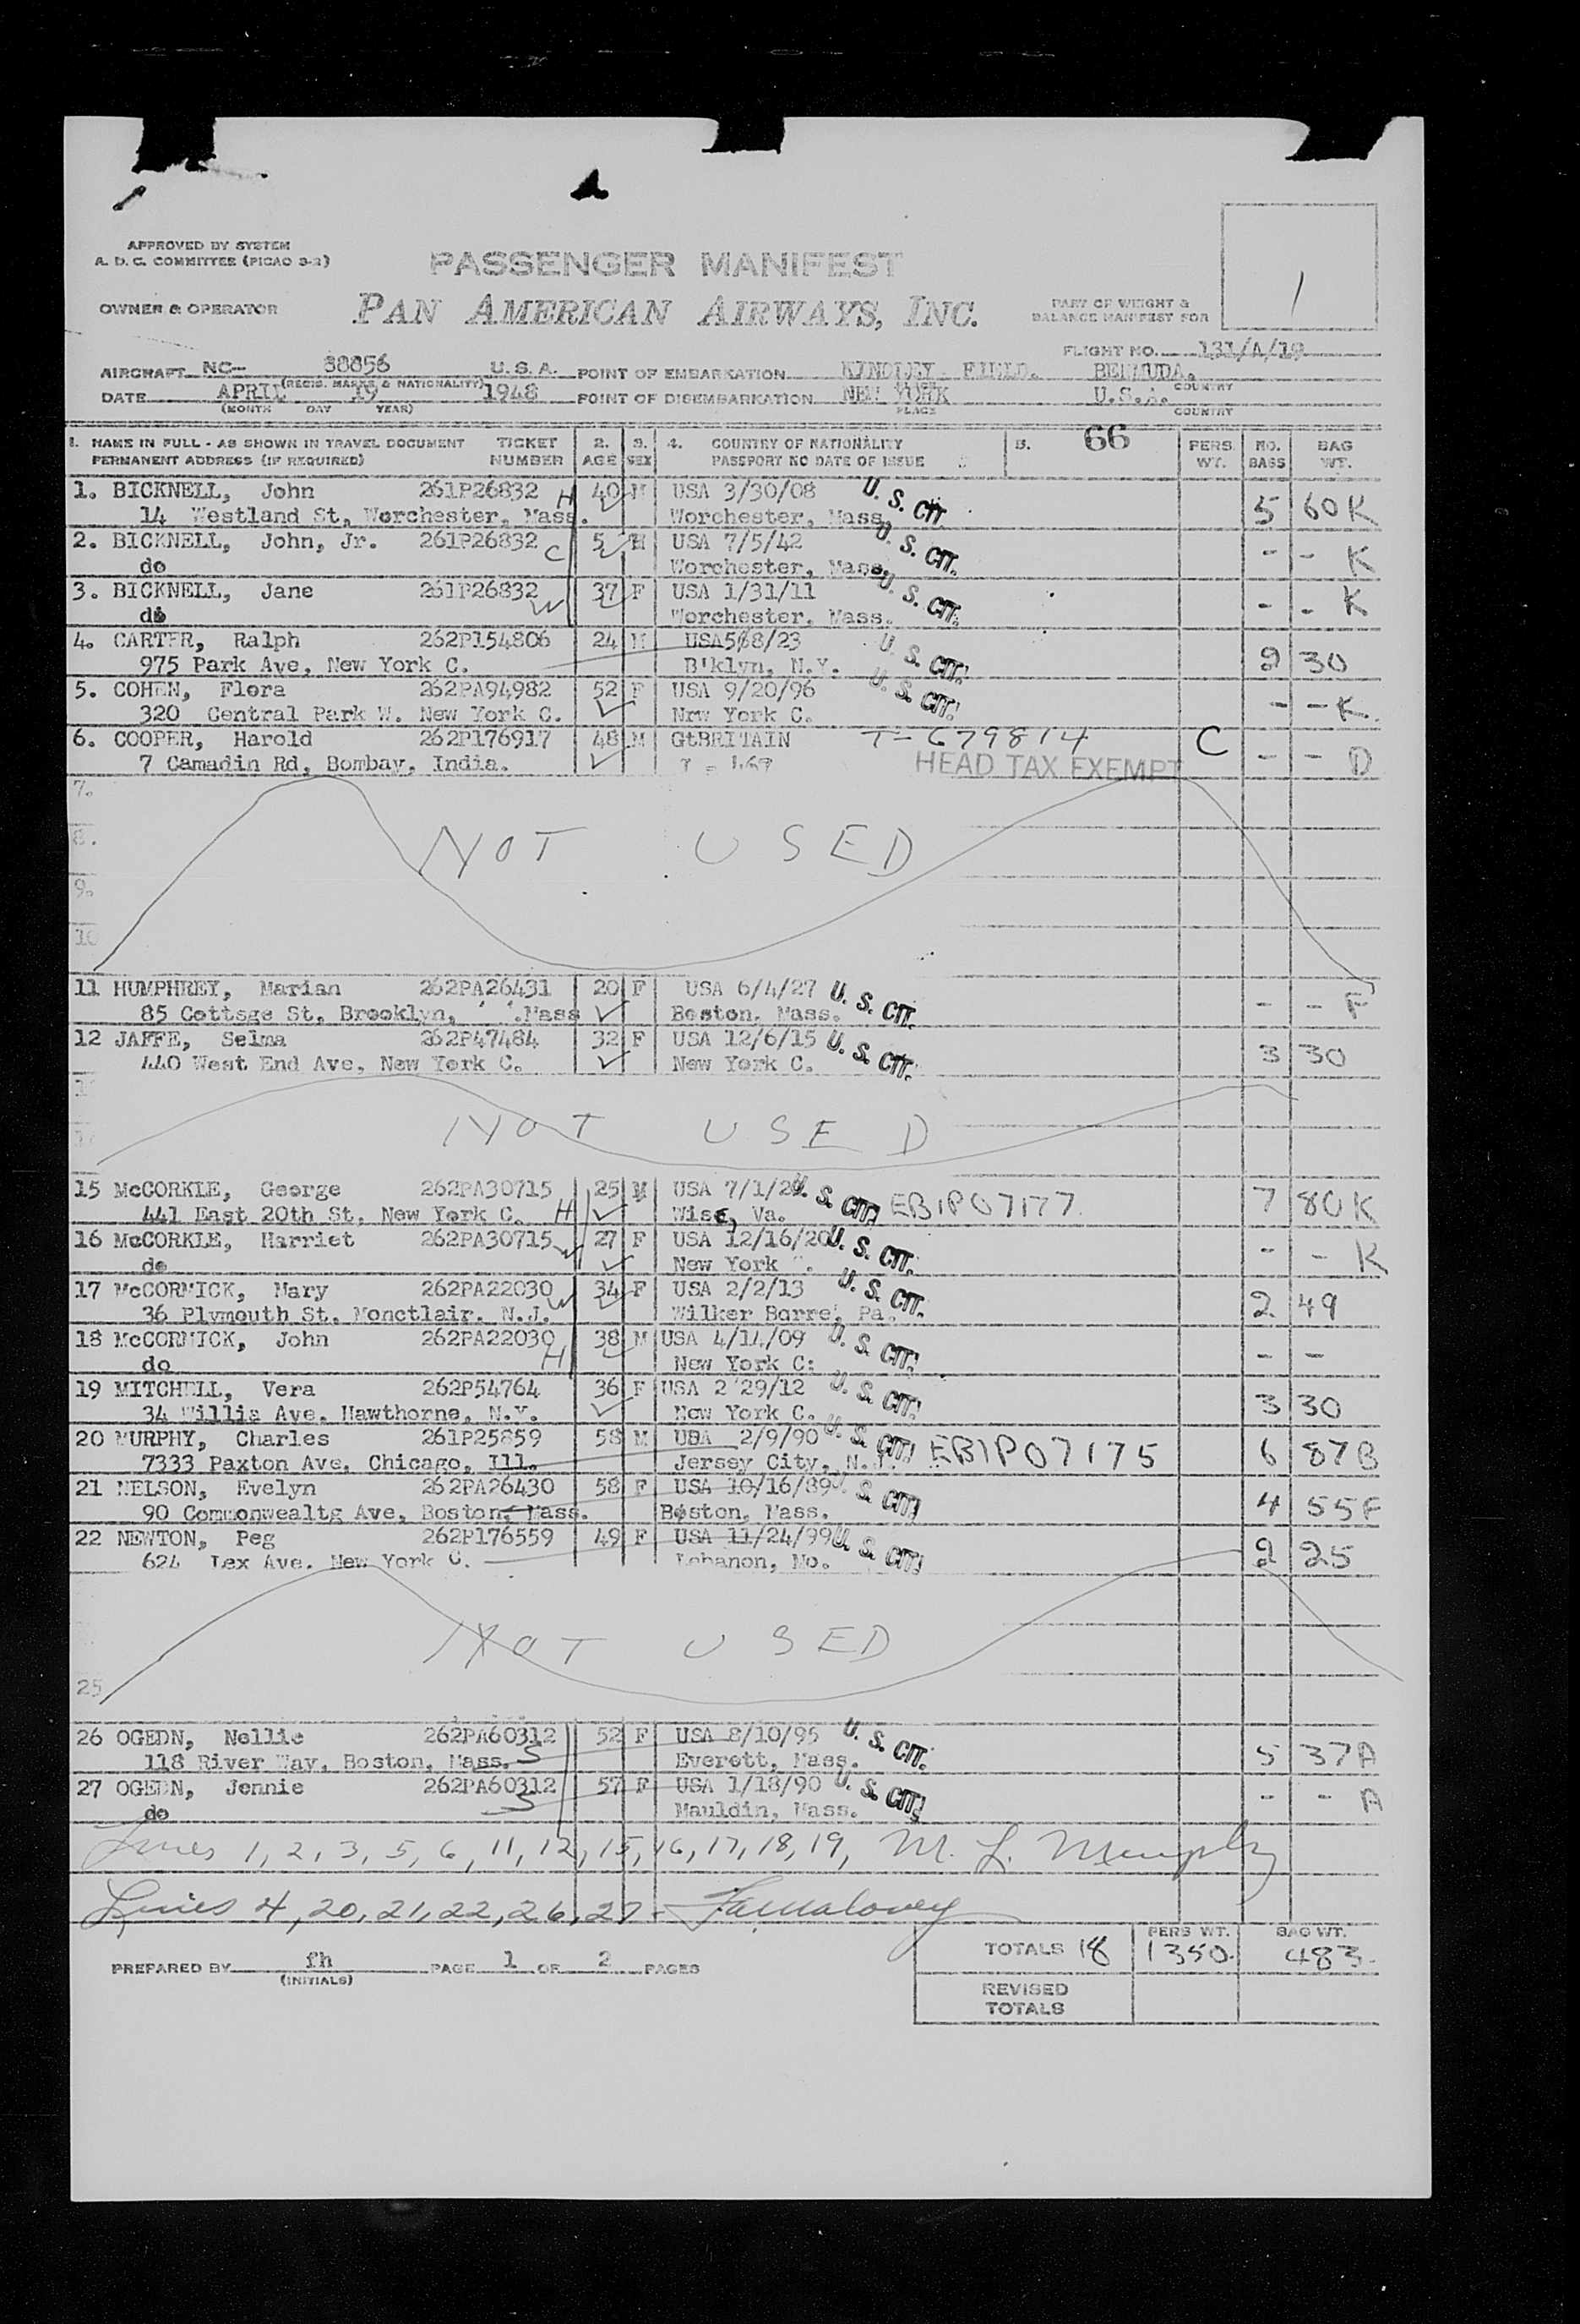 APPROVED BY SYSTEM
A. D. C. COMMITTEE (PICAO 3-2)
PASSENGER MANIFEST
1
OWNER & OPERATOR PAN AMERICAN AIRWAYS, INC. PART OF WEIGHT & BALANCE MANIFEST FOR
FLIGHT NO. 131/A/19
AIRCRAFT NC- 88856 U.S.A. POINT OF EMBARKATION KINDLEY FIELD. BERMUDA.
(REGIS. MARKS & NATIONALITY) COUNTRY
DATE APRIL 19 1948 POINT OF DISEMBARKATION NEW YORK U.S.A.
(MONTH DAY YEAR) PLACE COUNTRY
1. NAME IN FULL - AS SHOWN IN TRAVEL DOCUMENT TICKET 2. 3. 4. COUNTRY OF NATIONALITY 5. 66 PERS. NO. BAG
PERMANENT ADDRESS (IF REQUIRED) NUMBER AGE SEX PASSPORT NO DATE OF ISSUE WT. BAGS WT.
1. BICKNELL, John 261P26832 H 40 M USA 3/30/08 U. S. CIT. 5 60 K
14 Westland St, Worchester, Mass. Worchester, Mass.
2. BICKNELL, John, Jr. 261P26832 C 5 M USA 7/5/42 U. S. CIT. - - K
do Worchester, Mass.
3. BICKNELL, Jane 261P26832 W 37 F USA 1/31/11 U. S. CIT. - - K
do Worchester, Mass.
4. CARTER, Ralph 262P154806 24 M USA5/8/23 U. S. CIT. 2 30
975 Park Ave, New York C. B'klyn, N.Y.
5. COHEN, Flora 262PA94982 52 F USA 9/20/96 U. S. CIT. - - K.
320 Central Park W. New York C. Nrw York C.
6. COOPER, Harold 262P176917 48 M GtBRITAIN T-679814 C - - D
7 Camadin Rd, Bombay, India. HEAD TAX EXEMPT
7.
8. NOT USED
9.
10
11 HUMPHREY, Marian 262PA26431 20 F USA 6/4/27 U. S. CIT. - - F
85 Cottsge St, Brooklyn, Mass Boston, Mass.
12 JAFFE, Selma 262P47484 32 F USA 12/6/15 U. S. CIT. 3 30
440 West End Ave, New York C. New York C.
NOT USED
15 McCORKLE, George 262PA30715 25 M USA 7/1/2 U. S. CIT. EB1P07177 7 80 K
441 East 20th St, New York C. H Wise, Va.
16 McCORKLE, Harriet 262PA30715 W 27 F USA 12/16/20 U. S. CIT. - - K
do New York
17 McCORMICK, Mary 262PA22030 W 34 F USA 2/2/13 U. S. CIT. 2 49
36 Plymouth St, Monctlair, N.J. Wilker Barre, Pa.
18 McCORMICK, John 262PA22030 H 38 M USA 4/14/09 U. S. CIT. - -
do New York C.
19 MITCHELL, Vera 262P54764 36 F USA 2/29/12 U. S. CIT. 3 30
34 Willis Ave, Hawthorne, N.Y. New York C.
20 MURPHY, Charles 261P25859 58 M USA 2/9/90 U. S. CIT. EB1P07175 6 87 B
7333 Paxton Ave, Chicago, Ill. Jersey City, N.J.
21 NELSON, Evelyn 262PA26430 58 F USA 10/16/89 U. S. CIT. 4 55 F
90 Commonwealtg Ave, Boston, Mass. Boston, Mass.
22 NEWTON, Peg 262P176559 49 F USA 11/24/99 U. S. CIT. 2 25
624 Lex Ave. New York C. Lebanon, Mo.
NOT USED
25
26 OGEDN, Nellie 262PA60312 52 F USA 8/10/95 U. S. CIT. 5 37 A
118 River Way, Boston, Mass. S Everett, Mass.
27 OGEDN, Jennie 262PA60312 57 F USA 1/18/90 U. S. CIT. - - A
do S Mauldin, Mass.
Lines 1, 2, 3, 5, 6, 11, 12, 15, 16, 17, 18, 19, M. L. Murphy
Lines 4, 20, 21, 22, 26, 27 -
PERS WT. BAG WT.
TOTALS 18 1350. 483.
PREPARED BY fh PAGE 1 OF 2 PAGES
(INITIALS)
REVISED TOTALS